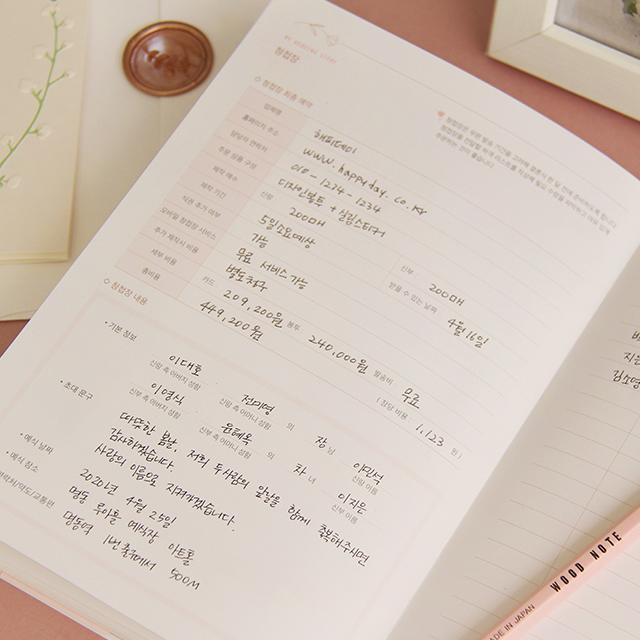 MY WEDDING STORY
청첩장
청첩장은 우편 발송 기간을 고려해 결혼식 한 달 전에 준비하도록 합니다.
◇ 청첩장 최종 예약
업체명 해피데이
홈페이지 주소 www.happyday.co.kr
담당자 연락처 010-1234-1234
주문 상품 구성 디자인봉투 + 실링스티커
제작 매수 신랑 200매 신부 200매
제작 기간 5일소요예상 받을 수 있는 날짜 4월 16일
식권 추가 여부 가능
모바일 청첩장 서비스 무료 서비스가능
추가 제작시 비용 별도청구
세부 비용 카드 209,200원 봉투 240,000원 발송비 무료
총비용 449,200원 ( 장당 비용 1,123 원 )
◇ 청첩장 내용
• 기본 정보
이대호 전미영 의 장 남 이민석
신랑 측 아버지 성함 신랑 측 어머니 성함 신랑 이름
이영식 윤혜옥 의 차 녀 이지은
신부 측 아버지 성함 신부 측 어머니 성함 신부 이름
• 초대 문구
따뜻한 봄날, 저희 두사람의 앞날을 함께 축복해주시면
감사하겠습니다.
사랑의 이름으로 지켜가겠습니다.
• 예식 날짜 2020년 4월 25일
• 예식 장소 명동 루이홀 예식장 아트홀
연락처/약도/교통편 명동역 1번출구에서 500M
지은
김소
WOOD NOTE
MADE IN JAPAN